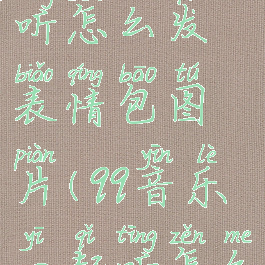 听怎么发
biǎo qíng bāo tú
表情包图
piàn yīn lè
片(99音乐
yī qǐ tīng zěn me